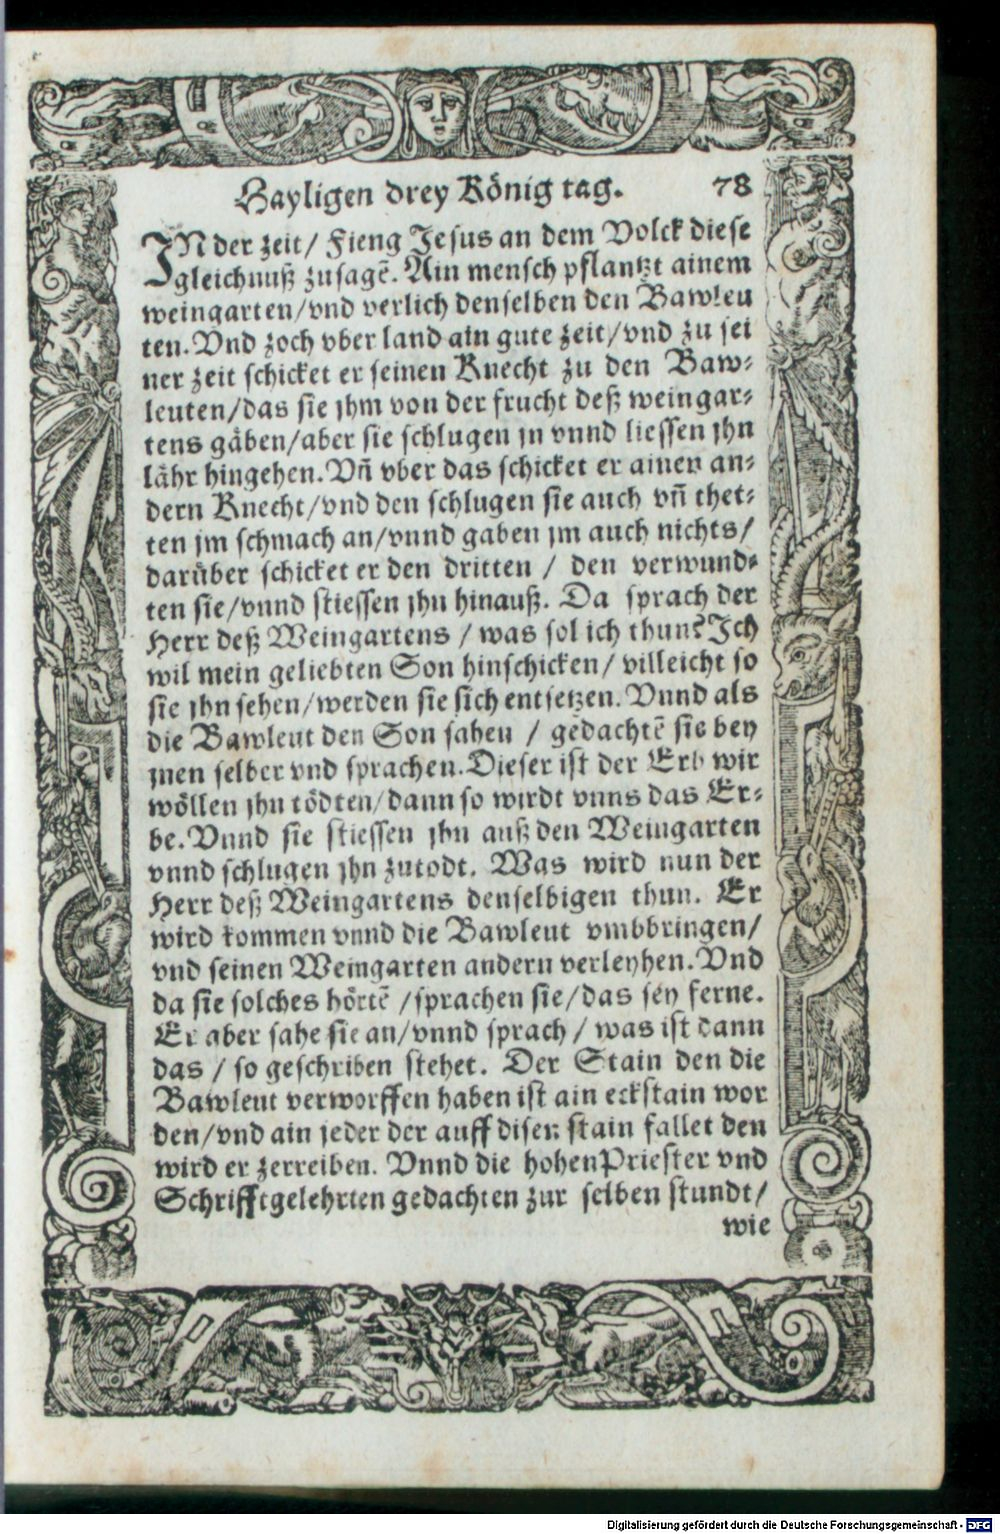 Hayligen drey König tag. 78
IN der zeit/ Fieng Jesus an dem Volck diese
gleichnuß zusagẽ. Ain mensch pflantzt ainem
weingarten/vnd verlich denselben den Bawleu
ten. Vnd zoch vber land ain gute zeit/vnd zu sei
ner zeit schicket er seinen Knecht zu den Baw⸗
leuten/das sie jhm von der frucht deß weingar⸗
tens gåben/aber sie schlugen jn vnnd liessen jhn
låhr hingehen. Vñ vber das schicket er ainen an⸗
dern Knecht/vnd den schlugen sie auch vñ thet⸗
ten jm schmach an/vnnd gaben jm auch nichts/
darůber schicket er den dritten / den verwund⸗
ten sie/vnnd stiessen jhn hinauß. Da sprach der
Herr deß Weingartens / was sol ich thun? Ich
wil mein geliebten Son hinschicken/ villeicht so
sie jhn sehen/werden sie sich entsetzen. Vnnd als
die Bawleut den Son sahen / gedachtẽ sie bey
jnen selber vnd sprachen. Dieser ist der Erb wir
wöllen jhn tödten/dann so wirdt vnns das Er⸗
be. Vnnd sie stiessen jhn auß den Weingarten
vnnd schlugen jhn zutodt. Was wird nun der
Herr deß Weingartens denselbigen thun. Er
wird kommen vnnd die Bawleut vmbbringen/
vnd seinen Weingarten andern verleyhen. Vnd
da sie solches hörtẽ /sprachen sie/das sey ferne.
Er aber sahe sie an/vnnd sprach / was ist dann
das / so geschriben stehet. Der Stain den die
Bawleut verworffen haben ist ain eckstain wor
den/vnd ain jeder der auff disen stain fallet den
wird er zerreiben. Vnnd die hohen Priester vnd
Schrifftgelehrten gedachten zur selben stundt/
wie
Digitalisierung gefördert durch die Deutsche Forschungsgemeinschaft - DFG